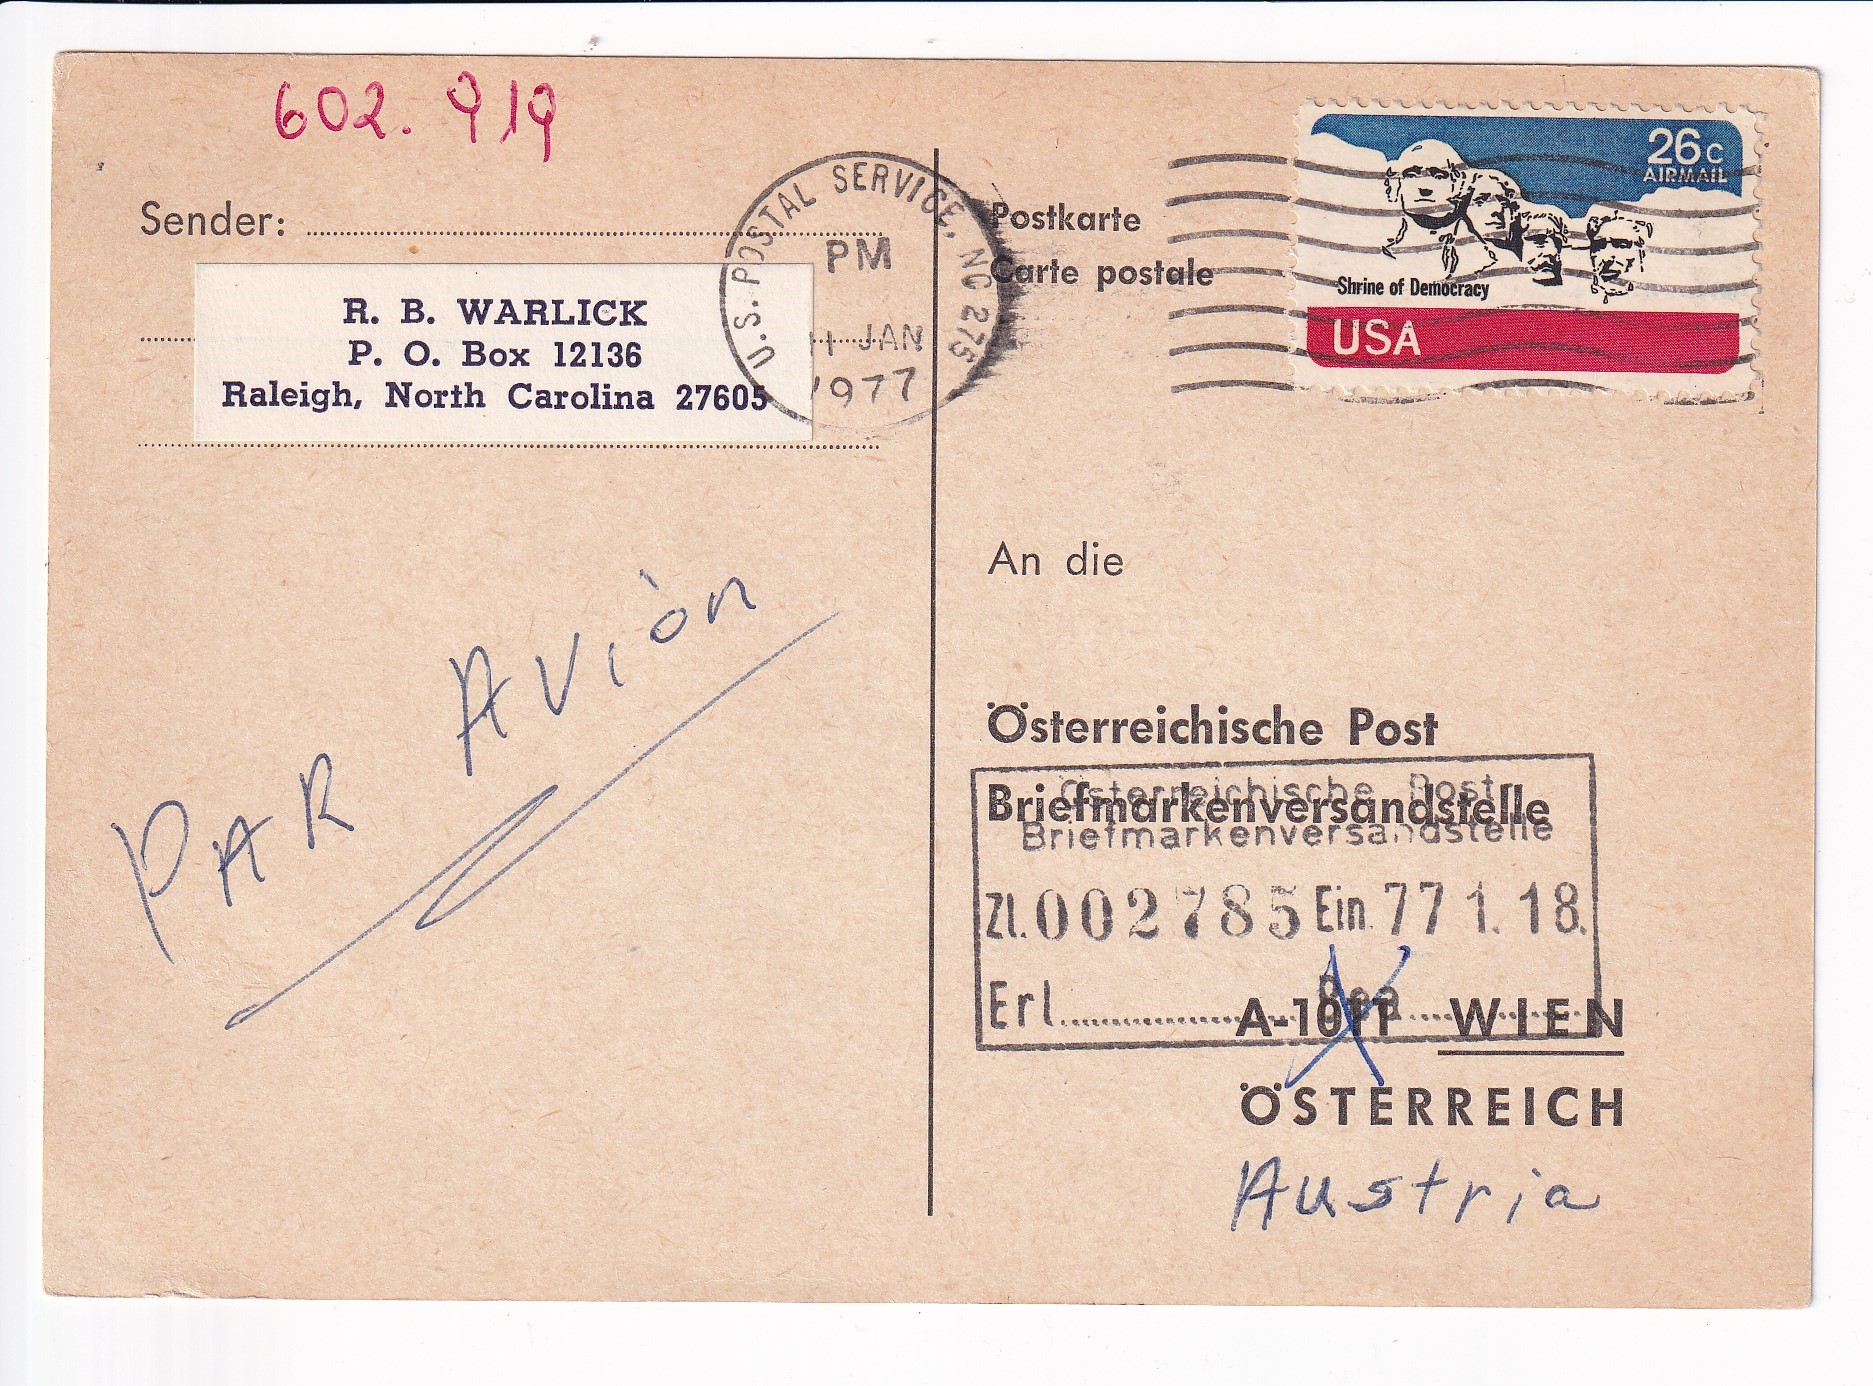 602.919
Sender:
R. B. WARLICK
P. O. Box 12136
Raleigh, North Carolina 27605
U.S. POSTAL SERVICE, NC 275
PM
11 JAN
1977
Postkarte
Carte postale
26c
AIRMAIL
Shrine of Democracy
USA
PAR AViòn
An die
Österreichische Post
Briefmarkenversandstelle
Österreichische Post
Briefmarkenversandstelle
Zl. 002785 Ein. 77 1. 18.
Erl.
A-1011 WIEN
ÖSTERREICH
Austria